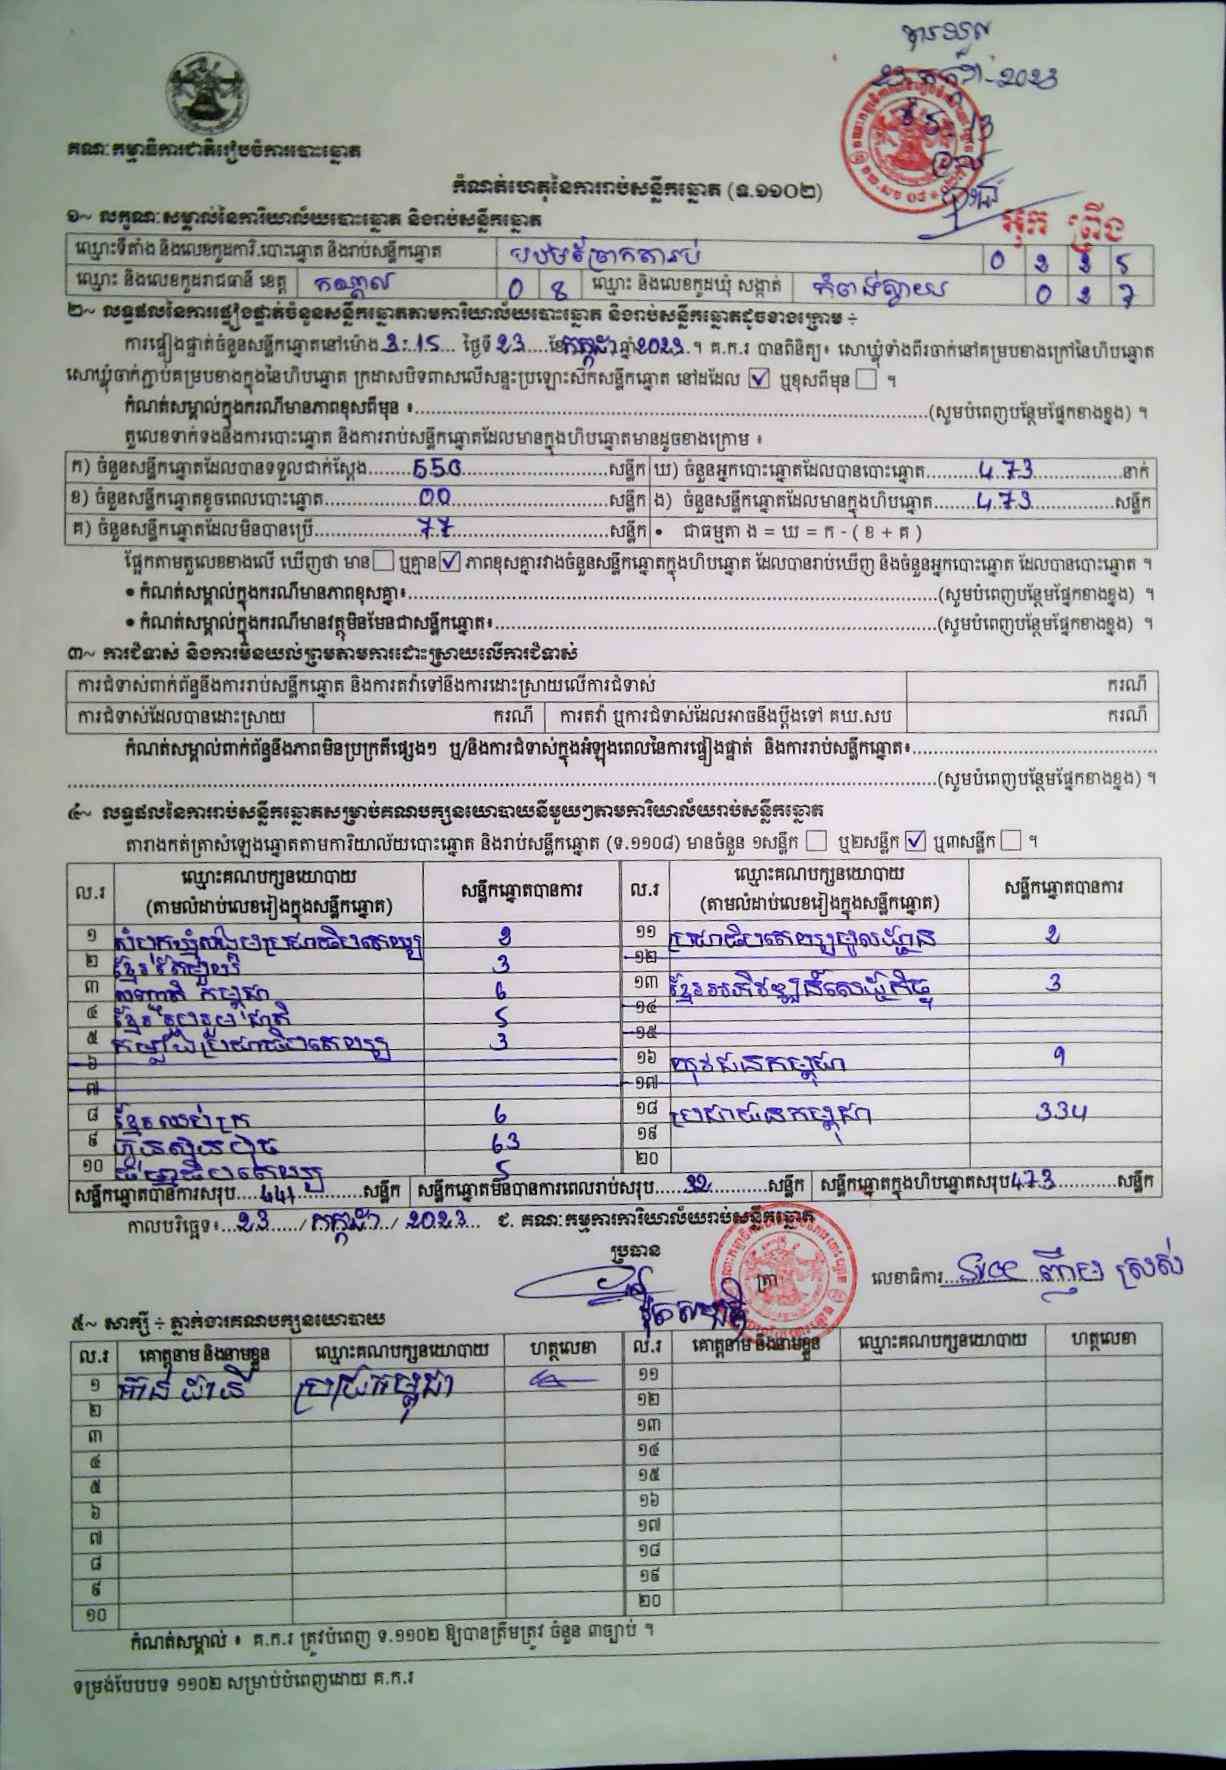 គណៈកម្មាធិការជាតិរៀបចំការបោះឆ្នោត
កំណត់ហេតុនៃការរាប់សន្លឹកឆ្នោត (ទ.១១០២)
១~ លក្ខណៈសម្គាល់នៃការិយាល័យបោះឆ្នោត និងរាប់សន្លឹកឆ្នោត
ឈ្មោះទីតាំង និងលេខកូដការិ.បោះឆ្នោត និងរាប់សន្លឹកឆ្នោត
ឈ្មោះ និងលេខកូដរាជធានី ខេត្ត កណ្តាល 0 8 ឈ្មោះ និងលេខកូដឃុំ សង្កាត់ កំពង់ស្វាយ
២~ លទ្ធផលនៃការផ្ទៀងផ្ទាត់ចំនួនសន្លឹកឆ្នោតតាមការិយាល័យបោះឆ្នោត និងរាប់សន្លឹកឆ្នោតដូចខាងក្រោម ÷
ការផ្ទៀងផ្ទាត់ចំនួនសន្លឹកឆ្នោតនៅម៉ោង 3:15 ថ្ងៃទី 23 ខែ កក្កដា ឆ្នាំ 2023 ។ គ.ក.រ បានពិនិត្យ៖ សោឃ្លុំទាំងពីរចាក់នៅគម្របខាងក្រៅនៃហិបឆ្នោត
សោឃ្លុំចាក់ភ្ជាប់គម្របខាងក្នុងនៃហិបឆ្នោត ក្រដាសបិទពាសលើសន្ទះប្រឡោះសឹកសន្លឹកឆ្នោត នៅដដែល ☑ ឬខុសពីមុន ☐ ។
កំណត់សម្គាល់ក្នុងករណីមានភាពខុសពីមុន ៖ (សូមបំពេញបន្ថែមផ្នែកខាងខ្នង) ។
តួលេខទាក់ទងនឹងការបោះឆ្នោត និងការរាប់សន្លឹកឆ្នោតដែលមានក្នុងហិបឆ្នោតមានដូចខាងក្រោម ៖
ក) ចំនួនសន្លឹកឆ្នោតដែលបានទទួលជាក់ស្តែង 550 សន្លឹក ឃ) ចំនួនអ្នកបោះឆ្នោតដែលបានបោះឆ្នោត 473 នាក់
ខ) ចំនួនសន្លឹកឆ្នោតខូចពេលបោះឆ្នោត 00 សន្លឹក ង) ចំនួនសន្លឹកឆ្នោតដែលមានក្នុងហិបឆ្នោត 473 សន្លឹក
គ) ចំនួនសន្លឹកឆ្នោតដែលមិនបានប្រើ 77 សន្លឹក • ជាធម្មតា ង = ឃ = ក - ( ខ + គ )
ផ្អែកតាមតួលេខខាងលើ ឃើញថា មាន ☐ ឬគ្មាន ☑ ភាពខុសគ្នារវាងចំនួនសន្លឹកឆ្នោតក្នុងហិបឆ្នោត ដែលបានរាប់ឃើញ និងចំនួនអ្នកបោះឆ្នោត ដែលបានបោះឆ្នោត ។
• កំណត់សម្គាល់ក្នុងករណីមានភាពខុសគ្នា៖ (សូមបំពេញបន្ថែមផ្នែកខាងខ្នង) ។
• កំណត់សម្គាល់ក្នុងករណីមានវត្ថុមិនមែនជាសន្លឹកឆ្នោត៖ (សូមបំពេញបន្ថែមផ្នែកខាងខ្នង) ។
៣~ ការជំទាស់ និងការមិនយល់ព្រមតាមការដោះស្រាយលើការជំទាស់
ការជំទាស់ពាក់ព័ន្ធនឹងការរាប់សន្លឹកឆ្នោត និងការតវ៉ាទៅនឹងការដោះស្រាយលើការជំទាស់ ករណី
ការជំទាស់ដែលបានដោះស្រាយ ករណី ការតវ៉ា ឬការជំទាស់ដែលអាចនឹងប្តឹងទៅ គឃ.សប ករណី
កំណត់សម្គាល់ពាក់ព័ន្ធនឹងភាពមិនប្រក្រតីផ្សេងៗ ឬ/និងការជំទាស់ក្នុងអំឡុងពេលនៃការផ្ទៀងផ្ទាត់ និងការរាប់សន្លឹកឆ្នោត៖
(សូមបំពេញបន្ថែមផ្នែកខាងខ្នង) ។
៤~ លទ្ធផលនៃការរាប់សន្លឹកឆ្នោតសម្រាប់គណបក្សនយោបាយនីមួយៗតាមការិយាល័យរាប់សន្លឹកឆ្នោត
តារាងកត់ត្រាសំឡេងឆ្នោតតាមការិយាល័យបោះឆ្នោត និងរាប់សន្លឹកឆ្នោត (ទ.១១០៨) មានចំនួន ១សន្លឹក ☐ ឬ២សន្លឹក ☑ ឬ៣សន្លឹក ☐ ។
ល.រ ឈ្មោះគណបក្សនយោបាយ (តាមលំដាប់លេខរៀងក្នុងសន្លឹកឆ្នោត) សន្លឹកឆ្នោតបានការ ល.រ ឈ្មោះគណបក្សនយោបាយ (តាមលំដាប់លេខរៀងក្នុងសន្លឹកឆ្នោត) សន្លឹកឆ្នោតបានការ
១ សំបុកឃ្មុំសង្គមប្រជាធិបតេយ្យ ១១ ប្រជាធិបតេយ្យមូលដ្ឋាន 2
២ ខ្មែរតែមួយ 3 ១២
៣ សញ្ជាតិ កម្ពុជា 6 ១៣ ខ្មែរអភិវឌ្ឍន៍សេដ្ឋកិច្ច 3
៤ ខ្មែររួបរួមជាតិ 5 ១៤
៥ កម្លាំងប្រជាធិបតេយ្យ 3 ១៥
៦ ១៦ យុវជនកម្ពុជា
៧ ១៧
៨ ខ្មែរឈប់ក្រ 6 ១៨ ប្រជាជនកម្ពុជា 334
៩ ហ្វ៊ុនស៊ិនប៉ិច 63 ១៩
១០ ធម្មាធិបតេយ្យ 5 ២០
សន្លឹកឆ្នោតបានការសរុប 441 សន្លឹក សន្លឹកឆ្នោតមិនបានការពេលរាប់សរុប សន្លឹក សន្លឹកឆ្នោតក្នុងហិបឆ្នោតសរុប 473 សន្លឹក
កាលបរិច្ឆេទ៖ 23 / កក្កដា / 2023 ជ. គណៈកម្មការការិយាល័យរាប់សន្លឹកឆ្នោត
ប្រធាន ត្រា លេខាធិការ ញឹម ស្រស់
៥~ សាក្សី ÷ ភ្នាក់ងារគណបក្សនយោបាយ
ល.រ គោត្តនាម និងនាមខ្លួន ឈ្មោះគណបក្សនយោបាយ ហត្ថលេខា ល.រ គោត្តនាម និងនាមខ្លួន ឈ្មោះគណបក្សនយោបាយ ហត្ថលេខា
១ ១១
២ ១២
៣ ១៣
៤ ១៤
៥ ១៥
៦ ១៦
៧ ១៧
៨ ១៨
៩ ១៩
១០ ២០
កំណត់សម្គាល់ ៖ គ.ក.រ ត្រូវបំពេញ ទ.១១០២ ឱ្យបានត្រឹមត្រូវ ចំនួន ៣ច្បាប់ ។
ទម្រង់បែបបទ ១១០២ សម្រាប់បំពេញដោយ គ.ក.រ